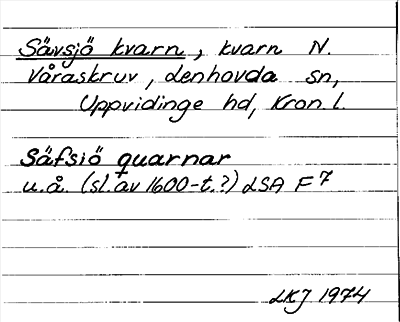 Sävsjö kvarn, kvarn N.
Våraskruv, Lenhovda sn,
Uppvidinge hd, Kron. l.
Säfsiö quarnar
u.å. (sl. av 1600-t.?) LSA F 7
LKJ 1974